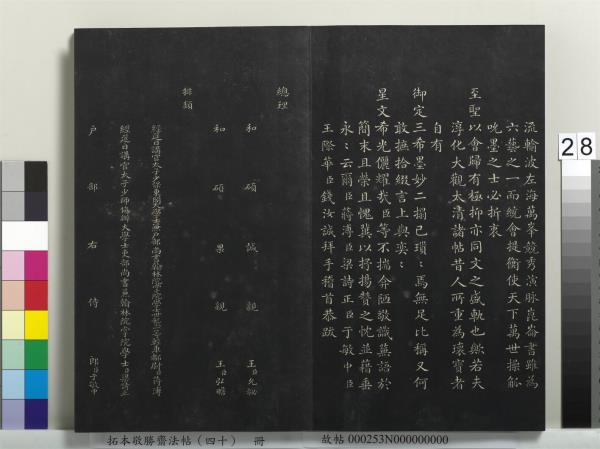 流輸波左海萬峯競秀演脉崑崙書雖為
六藝之一而統會提衡使天下萬世操觚
吮墨之士必折衷
至聖以會歸有極抑亦同文之盛軌也與若夫
淳化大觀太清諸帖昔人所重為瓌寶者
自有
御定三希墨妙二搨已瑣瑣焉無足比稱又何
敢摭拾綴言上與奕奕
星文希光儷耀哉臣等不揣弇陋敬識蕪語於
簡末且榮且愧冀以抒揚贊之忱並藉垂
永永云爾臣蔣溥臣梁詩正臣于敏中臣
王際華臣錢汝誠拜手稽首恭跋
總理
和碩誠親王臣允祕
和碩果親王臣弘瞻
排類
經筵日講官太子少保東閣大學士兼戶部尚書翰林院掌院學士臣蔣溥
經筵日講官太子少師協辦大學士吏部尚書兼翰林院掌院學士臣梁詩正
戶部右侍郎臣于敏中
28
拓本敬勝齋法帖(四十) 冊
故帖 000253N000000000